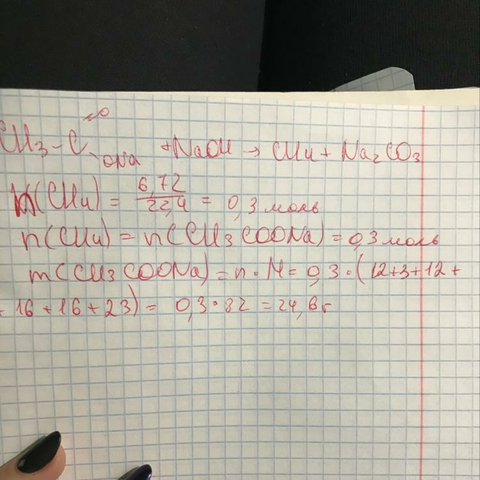 CH3-C=O ONa + NaOH → CH4 + Na2CO3
n(CH4) = 6,72/22,4 = 0,3 моль
n(CH4) = n(CH3COONa) = 0,3 моль
m(CH3COONa) = n·M = 0,3·(12+3+12+
+16+16+23) = 0,3·82 = 24,6г